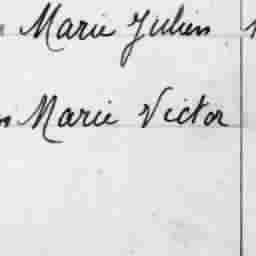 Marie Julien
Marie Victor